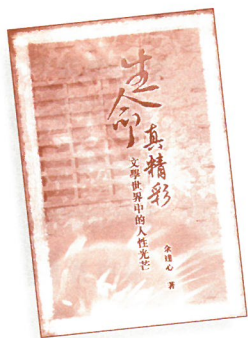 生命
真精彩
文學世界中的人性光芒
余達心 著